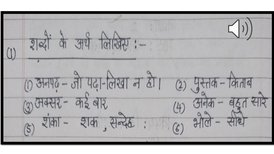 (1) शब्दों के अर्थ लिखिए :-
(1) अनपढ़ - जो पढ़ा-लिखा न हो। (2) पुस्तक - किताब
(3) अक्सर - कई बार (4) अनेक - बहुत सारे
(5) शंका - शक, सन्देह : (6) भोले - सीधे